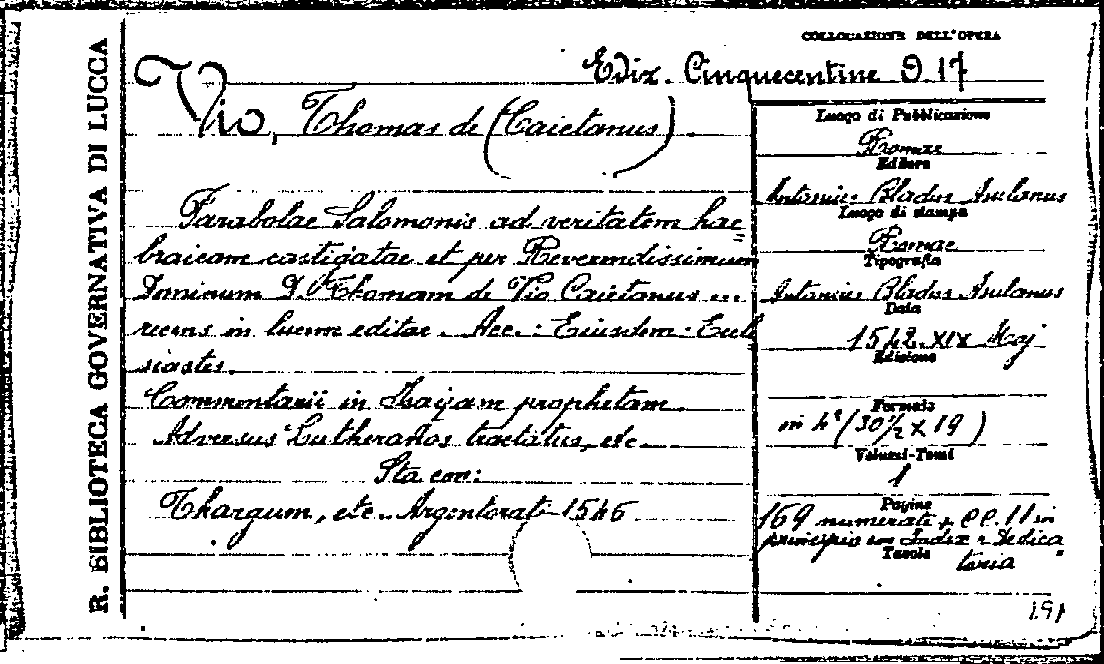 R. BIBLIOTECA GOVERNATIVA DI LUCCA
COLLOCAZIONE DELL'OPERA
Ediz. Cinquecentine D. 17
Vio, Thomas de (Caietanus).
Parabolae Salomonis ad veritatem hae=
braicam castigatae et per Reverendissimum
Dominum D. Thomam de Vio Caietanus ...
recens in lucem editae. Acc.: Eiusdem: Eccle
siastes.
Commentarii in Isaiam prophetam.
Adversus Lutheranos tractatus, etc.
Sta con:
Thargum, etc. Argentorati 1546
Luogo di Pubblicazione
Romae
Editore
Antonius Bladus Asulanus
Luogo di stampa
Romae
Tipografia
Antonius Bladus Asulanus
Data
1542. XIX Maj
Edizione
Formato
in 4° (30½ x 19)
Volumi-Tomi
1
Pagine
169 numerate + cc. 11 in
principio con Index e Dedica=
Tavole
toria
191